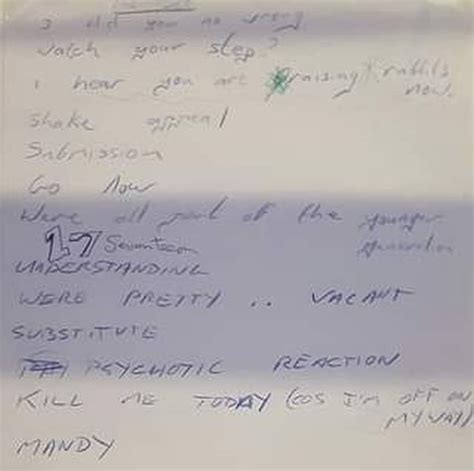 I did you no wrong
watch your step?
I hear you are raising rabbits
now.
Shake appeal
Submission
Go Now
Were all part of the younger
generation
17 Seventeen
UNDERSTANDING
WERE PRETTY .. VACANT
SUBSTITUTE
PSYCHOTIC REACTION
KILL ME TODAY (COS I'M OFF ON
MY WAY)
MANDY